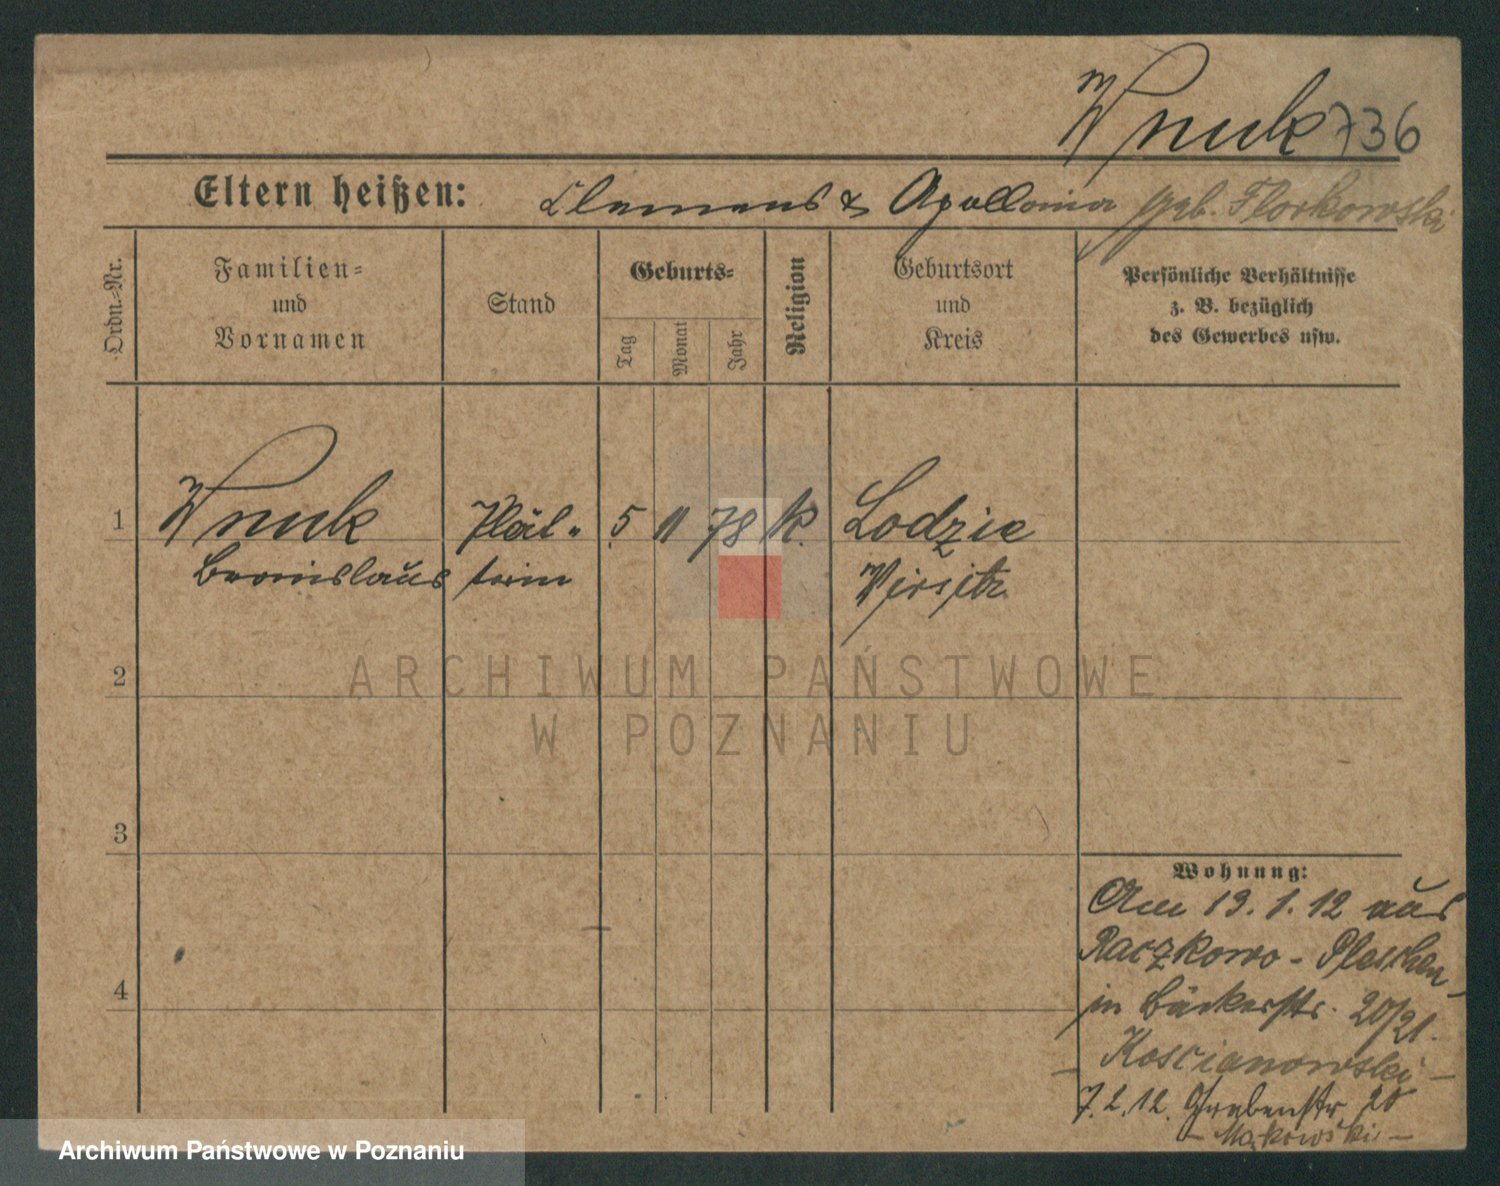 Wnuk 736
Eltern heißen: Clemens & Apollonia geb. Florkowski
Ordn.-Nr.
Familien-
und
Vornamen
Stand
Geburts-
Tag
Monat
Jahr
Religion
Geburtsort
und
Kreis
Persönliche Verhältnisse
z. B. bezüglich
des Gewerbes usw.
1
Wnuk Plät- 5. 11 78 k. Lodzie
Bronislaus terin Wirsitz
2
ARCHIWUM PAŃSTWOWE
W POZNANIU
3
Wohnung:
Am 13.1.12 aus
Raczkowo - Pleschen
4
in Bäckerstr. 20/21.
- Koscianowski -
7.2.12. Grabenstr. 20
- Mackowski -
Archiwum Państwowe w Poznaniu